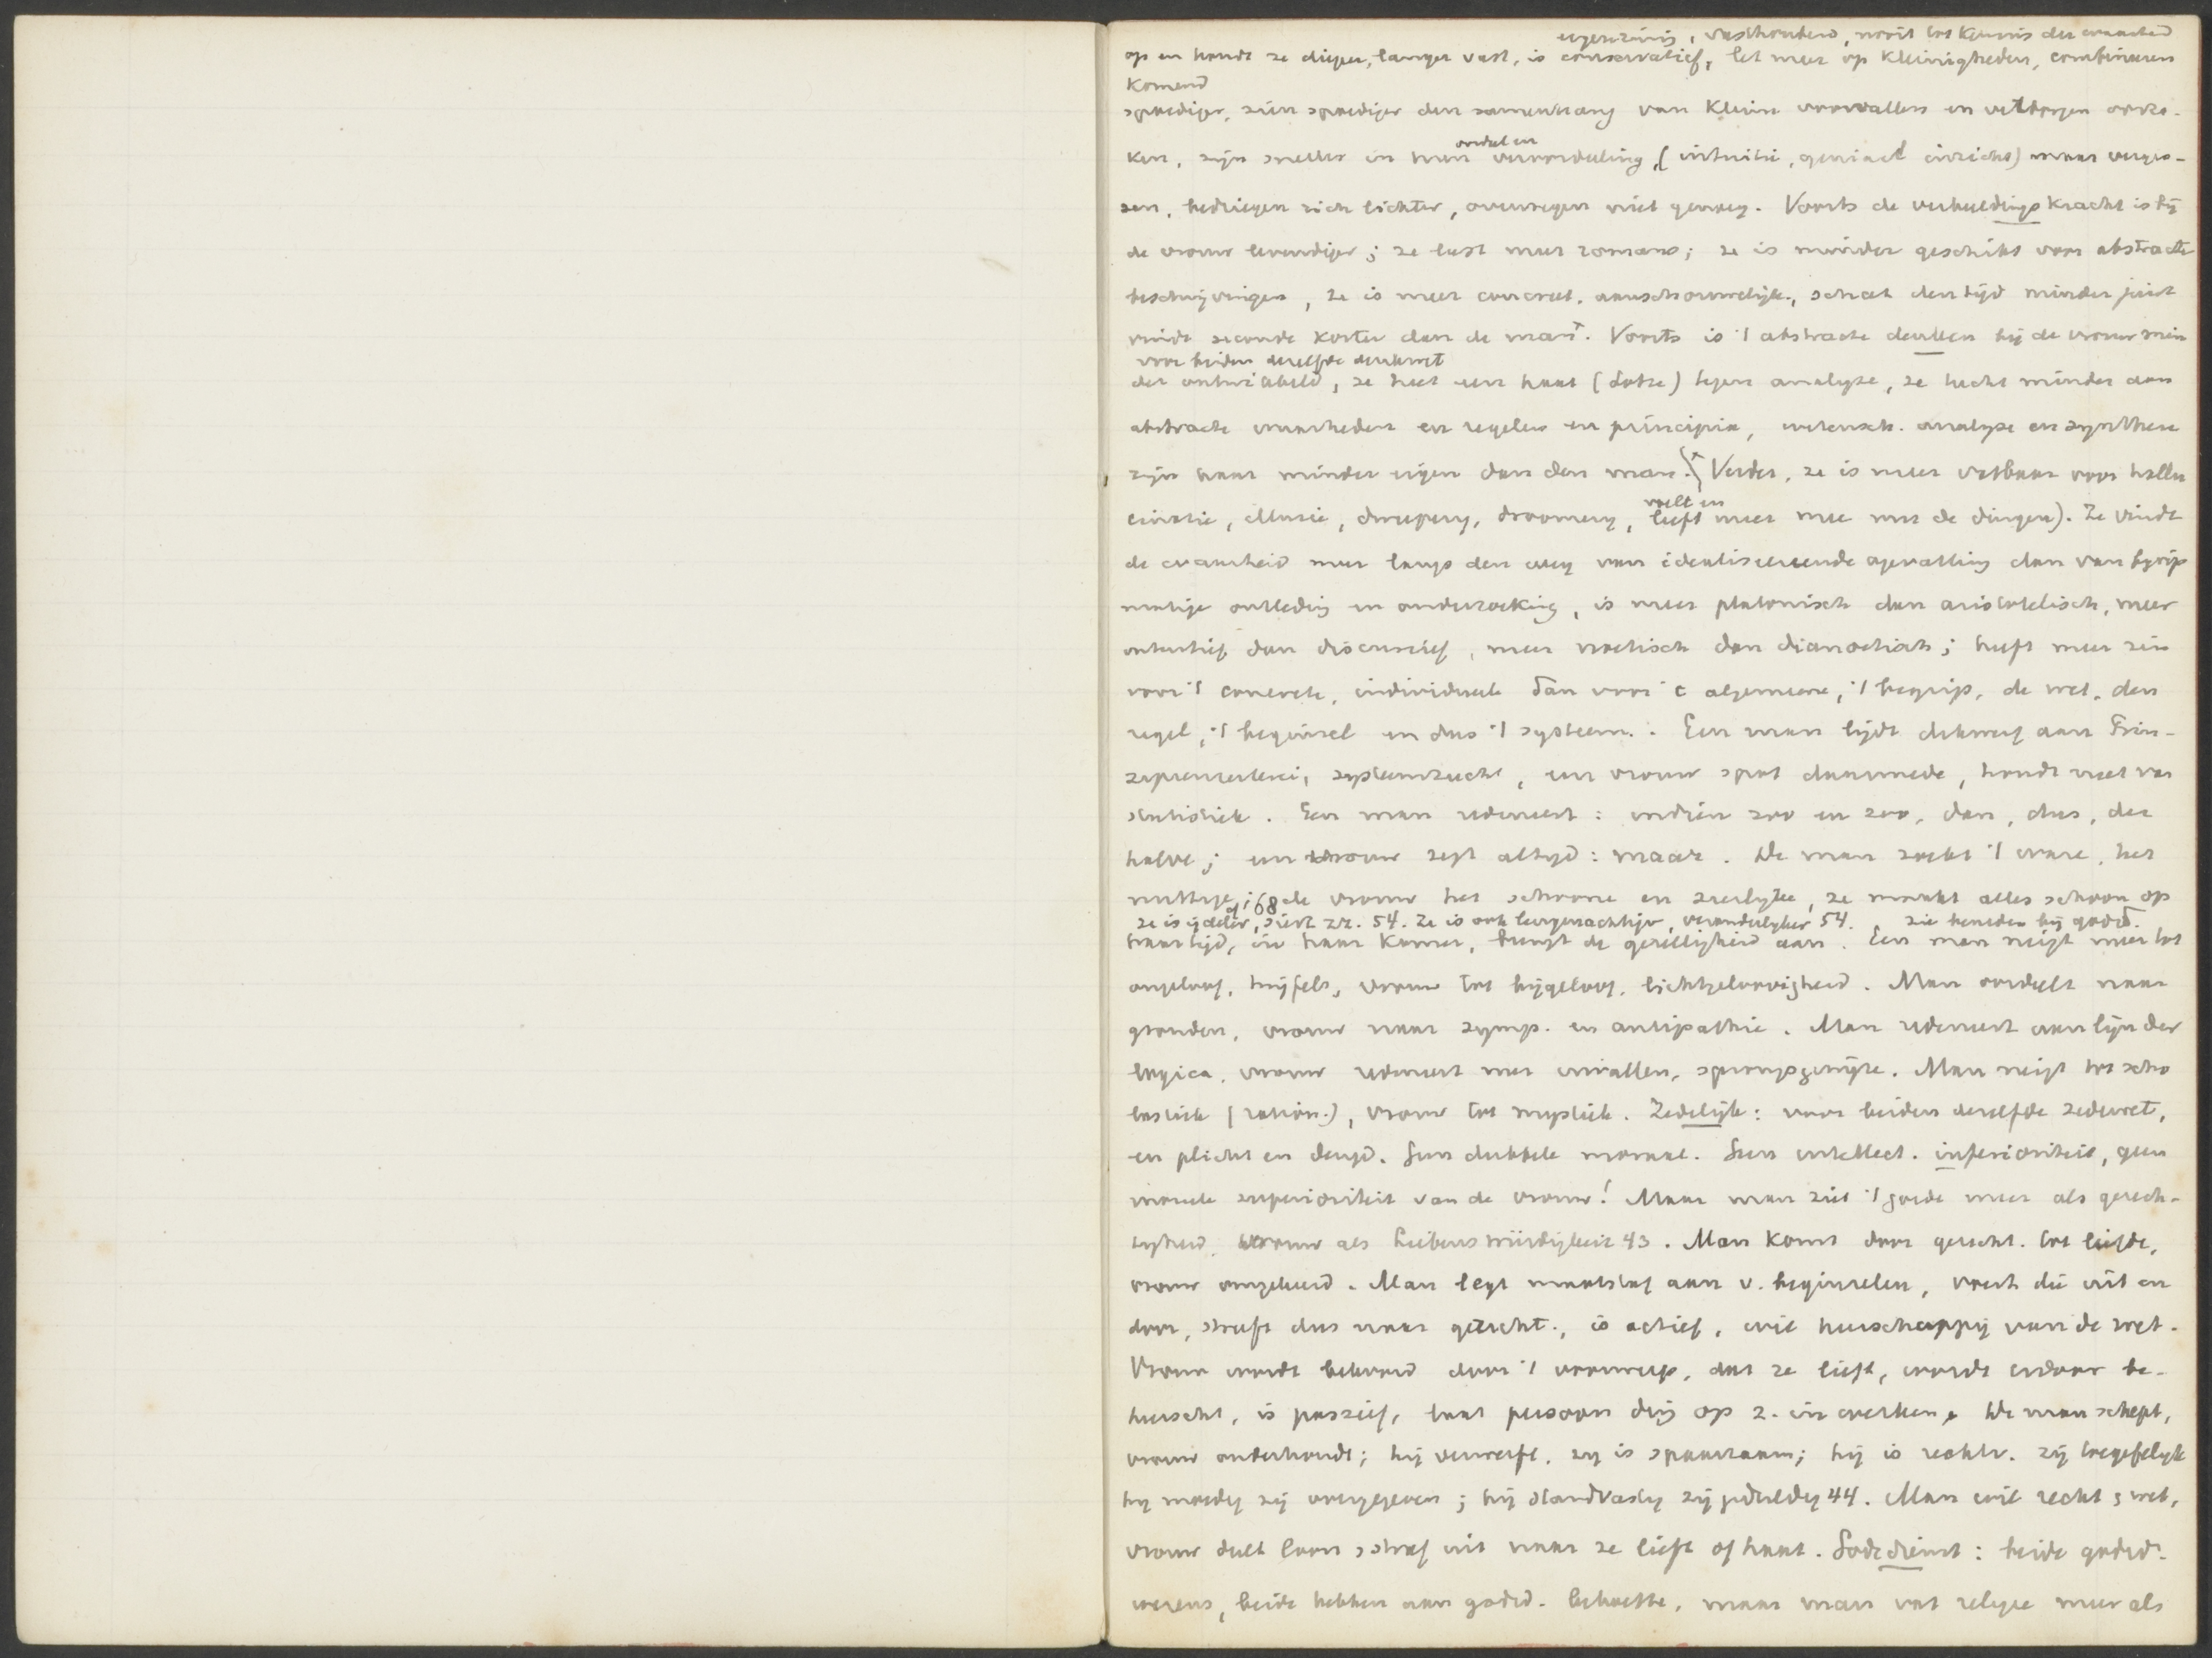 eigenzinnig, vasthoudend, nooit tot kennis der waarheid
op en houdt ze dieper, langer vast, is conservatief, let meer op kleinigheden, combineeren
komend
spoediger, zien spoediger den samenhang van kleine voorvallen en verborgen oorza-
ken, zijn sneller in hun oordeel en veroordeeling, (intuitie, geniaal inzicht) maar verges-
sen, bedriegen zich lichter, overwegen niet genoeg. Voorts de verbeeldingskracht is bij
de vrouw levendiger; ze leest meer romans; ze is minder geschikt voor abstracte
beschrijvingen, ze is meer concreet, aanschouwelijk, schat den tijd minder juist
vindt seconde korter dan de man. Voorts is 't abstracte denken bij de vrouw min
voor beiden dezelfde denkwet
der ontwikkeld, ze heet een haat (Lotze) tegen analyse, ze hecht minder aan
abstracte waarheden en regelen en principia, wetensch. analyse en synthese
zijn haar minder eigen dan den man. Verder, ze is meer vatbaar voor hallu
cinatie, illusie, dweepery, droomery, voelt en leeft meer mee met de dingen). Ze vindt
de waarheid meer langs den weg van idealiseerende opvatting dan van begrip
matige ontleding en onderzoeking, is meer platonisch dan aristotelisch, meer
intuitief dan discursief, meer noetisch dan dianoetisch; heeft meer zin
voor 't concrete, individueele dan voor 't algemeene, 't begrip, de wet, den
regel, 't beginsel en dus 't systeem. Een man lijdt dikwerf aan Prin-
zipienreiterei, systeemzucht, een vrouw spot daarmede, houdt niet van
statistiek. Een man redeneert: indien zoo en zoo, dan, dus, der
halve; een vrouw zegt altijd: maar. De man zoekt 't ware, het
nuttige, 68 de vrouw het schoone en sierlijke, ze maakt alles schoon op
ze is ijdeler, siert zz. 54. Ze is ook leugenachtiger, veranderlyker 54. zie beneden bij godsd.
haar tijd, in haar kamer, brengt de gezelligheid aan. Een man neigt meer tot
ongeloof, twijfels, vrouw tot bijgeloof, lichtgeloovigheid. Man oordeelt naar
gronden, vrouw naar symp. en antipathie. Man redeneert aan lijn der
logica, vrouw redeneert met invallen, sprongsgewijze. Man neigt tot scho
lastiek (ration.), vrouw tot mystiek. Zedelijk: voor beiden dezelfde zedewet,
en plicht en deugd. Geen dubbele moraal. Geen intellect. inferioriteit, geen
moreele superioriteit van de vrouw! Maar man ziet 't goede meer als gerech-
tigheid, vrouw als Liebenswürdigkeit 43. Man komt door gerecht. tot liefde,
vrouw omgekeerd. Man legt maatstaf aan v. beginselen, voert die uit en
door, streeft dus naar gerecht., is actief, wil heerschappij van de wet.
Vrouw wordt bekoord door 't voorwerp, dat ze lieft, wordt erdoor be-
heerscht, is passief, laat persoon diep op z. in werken. De man schept,
vrouw onderhoudt; hij verwerft, zy is spaarzaam; hij is rechtv. zij toegefelijk
hij moedig zij overgegeven; hij standvastig zij geduldig 44. Man wil recht & wet,
vrouw deelt loon & straf uit naar ze lieft of haat. Godsdienst: beide godsd.
wezens, beide hebben aan godsd. behoefte, maar man vat religie meer als